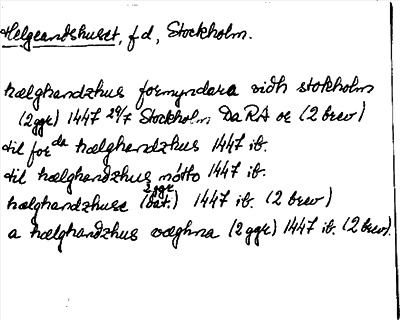 Helgeandshuset, f d, Stockholm.
hælghandzhus formyndara vidh stokholm
(2 ggr) 1447 29/7 Stockholm DaRA or (2 brev)
til forda hælghandzhus 1447 ib.
til hælghandzhus nötto 1447 ib.
hælghandzhuse (dat.) 2 ggr 1447 ib. (2 brev)
a hælghandzhus væghna (2 ggr) 1447 ib. (2 brev).